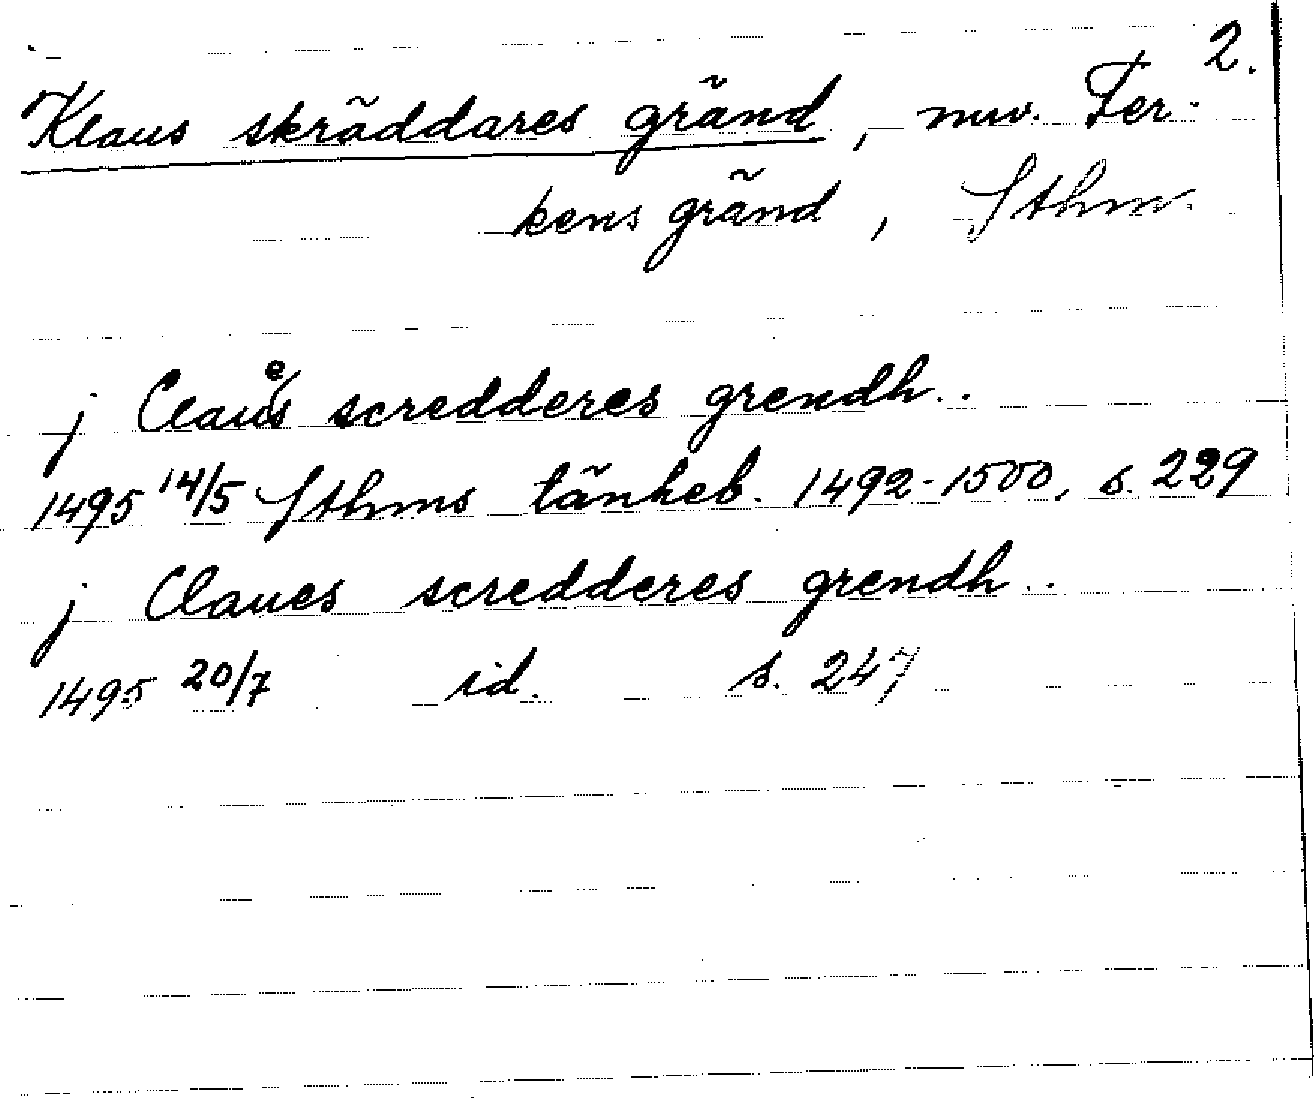 2.
Klaus skräddares gränd, nuv. Fer-
kens gränd, Sthm.
j Clauͤs scredderes grendh..
1495 14/5 Sthms tänkeb. 1492-1500, s. 229
j Claues scredderes grendh..
1495 20/7 id. s. 247